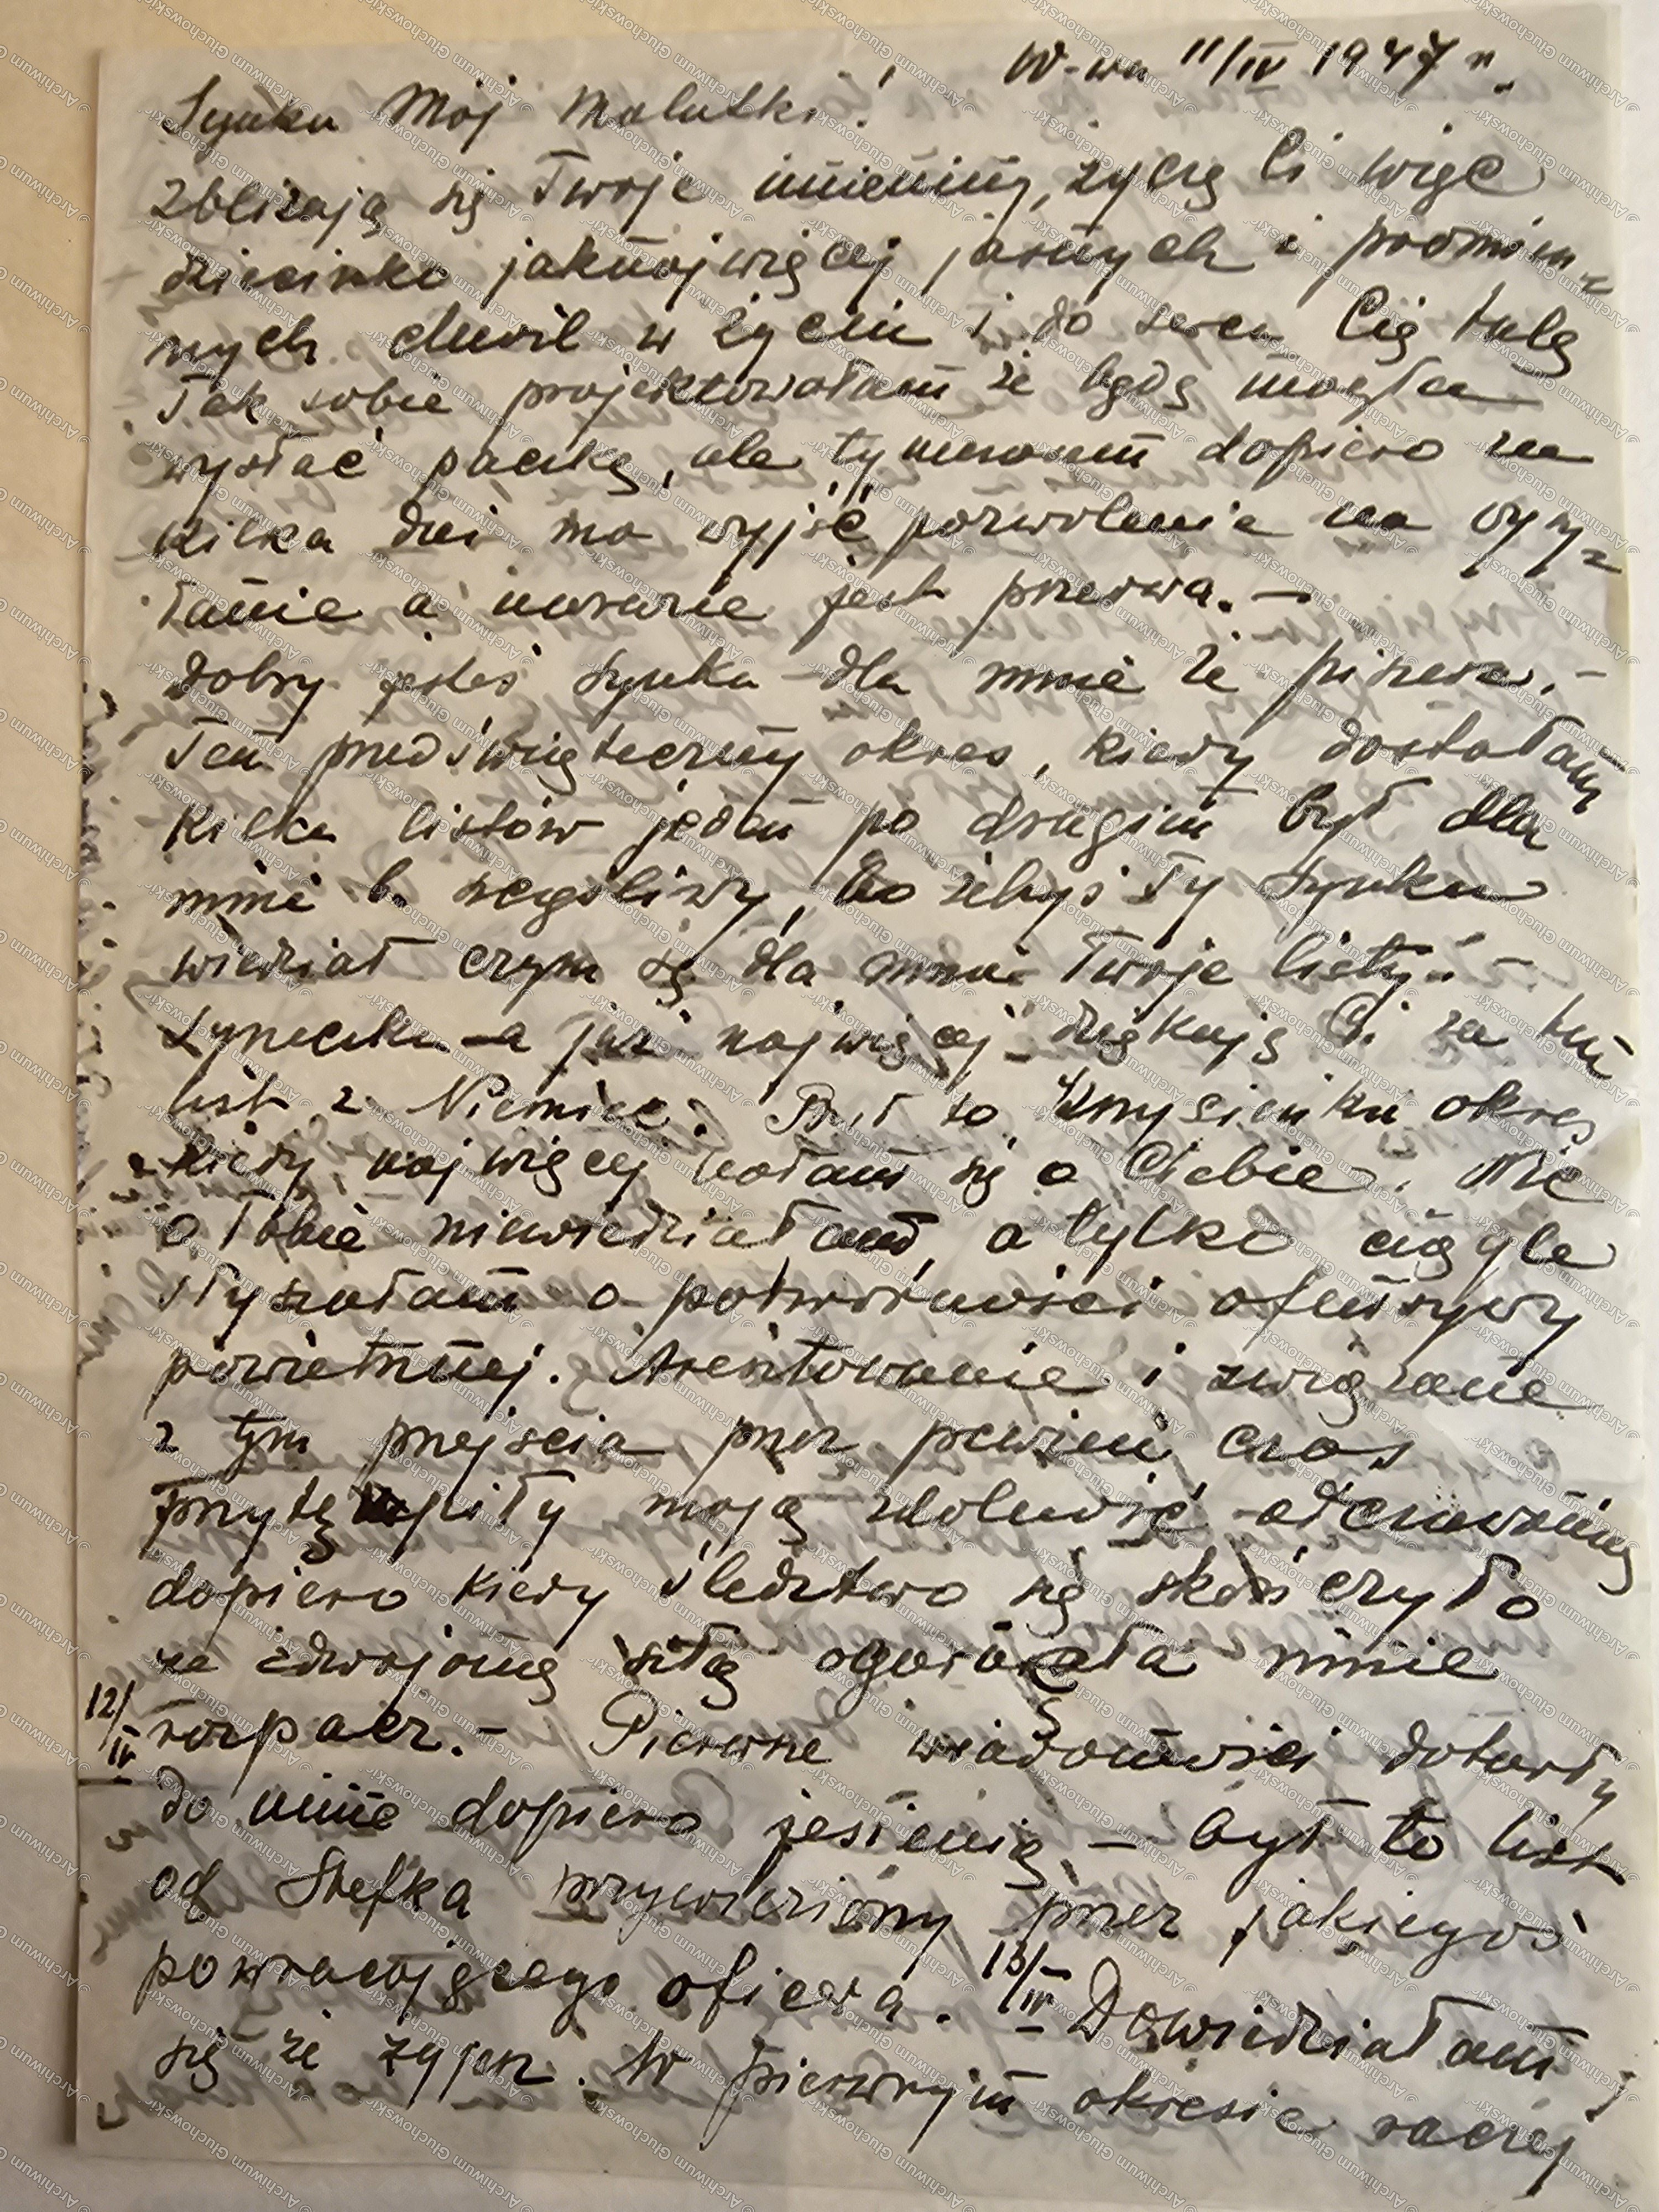 W-wa 11/IV 1947 r.
Synku Mój Malutki!
zbliżają się Twoje imieniny, życzę Ci więc
dziecinko jaknajwięcej jasnych i promien-
nych chwil w życiu i do serca Cię tulę
Tak sobie projektowałam że będę mogła
wysłać paczkę, ale tymczasem dopiero za
kilka dni ma wyjść pozwolenie na wysy-
łanie a narazie jest przerwa. –
dobry jesteś synku dla mnie że piszesz. –
Ten przedświąteczny okres, kiedy dostałam
kilka listów jeden po drugim był dla
mnie b. szczęśliwy, bo żebyś Ty synku
wiedział czym są dla mnie Twoje listy. –
Syneczku – a już najwięcej dziękuję Ci za ten
list z Niemiec. Był to synku okres
kiedy najwięcej bałam się o Ciebie. Nic
o Tobie niewiedziałam, a tylko ciągle
słyszałam o potworności ofensywy
powietrznej. Aresztowanie i związane
z tym przejścia przez pewien czas
przytępiły moją zdolność odczuwania
dopiero kiedy śledztwo się skończyło
ze zdwojoną siłą ogarnęła mnie
12/IV rozpacz. – Pierwsze wiadomości dotarły
do mnie dopiero jesienią – był to list
od Stefka przywieziony przez jakiegoś
powracającego oficera. 13/IV Dowiedziałam
się że żyjesz. W pierwszym okresie raczej
© Archiwum Głuchowski